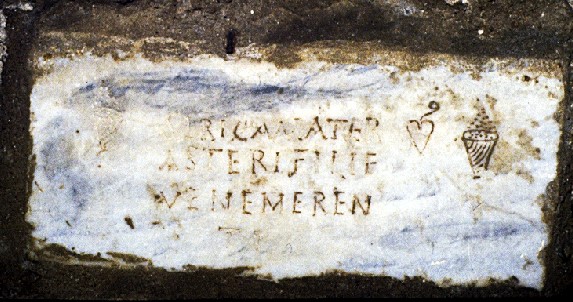 ERICAMATER
ASTERIFILIE
VENEMEREN